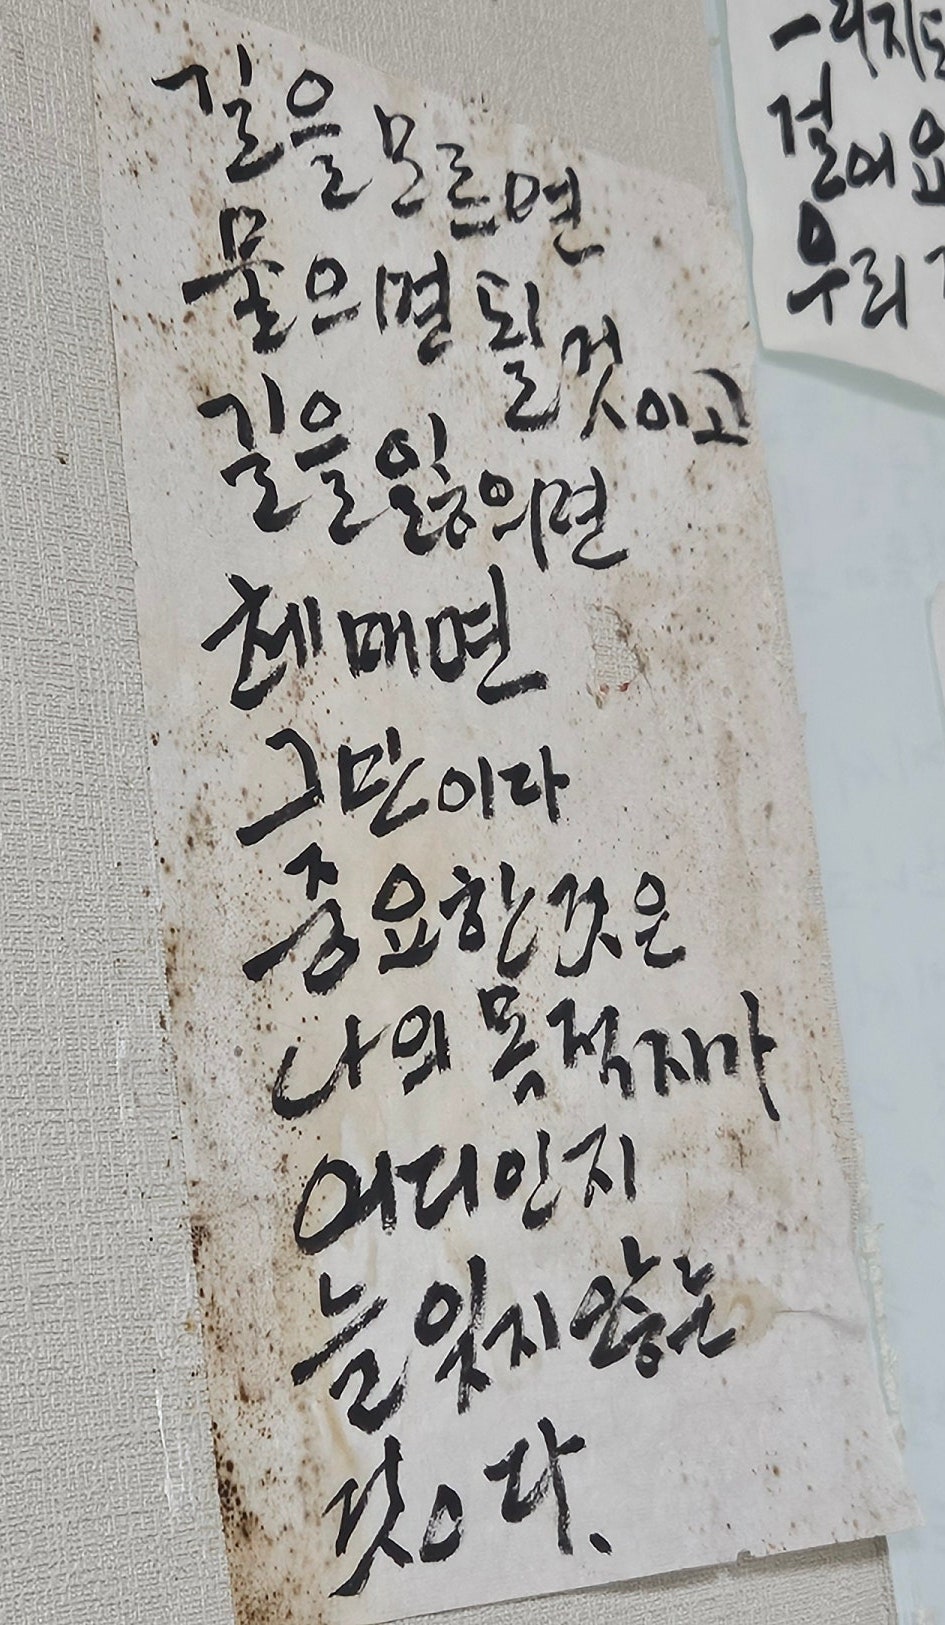 길을 모르면
물으면 될것이고
길을 잃으면
헤매면
그만이다
중요한것은
나의 목적지가
어디인지
늘 잊지 않는
것이다.
걸어요
우리